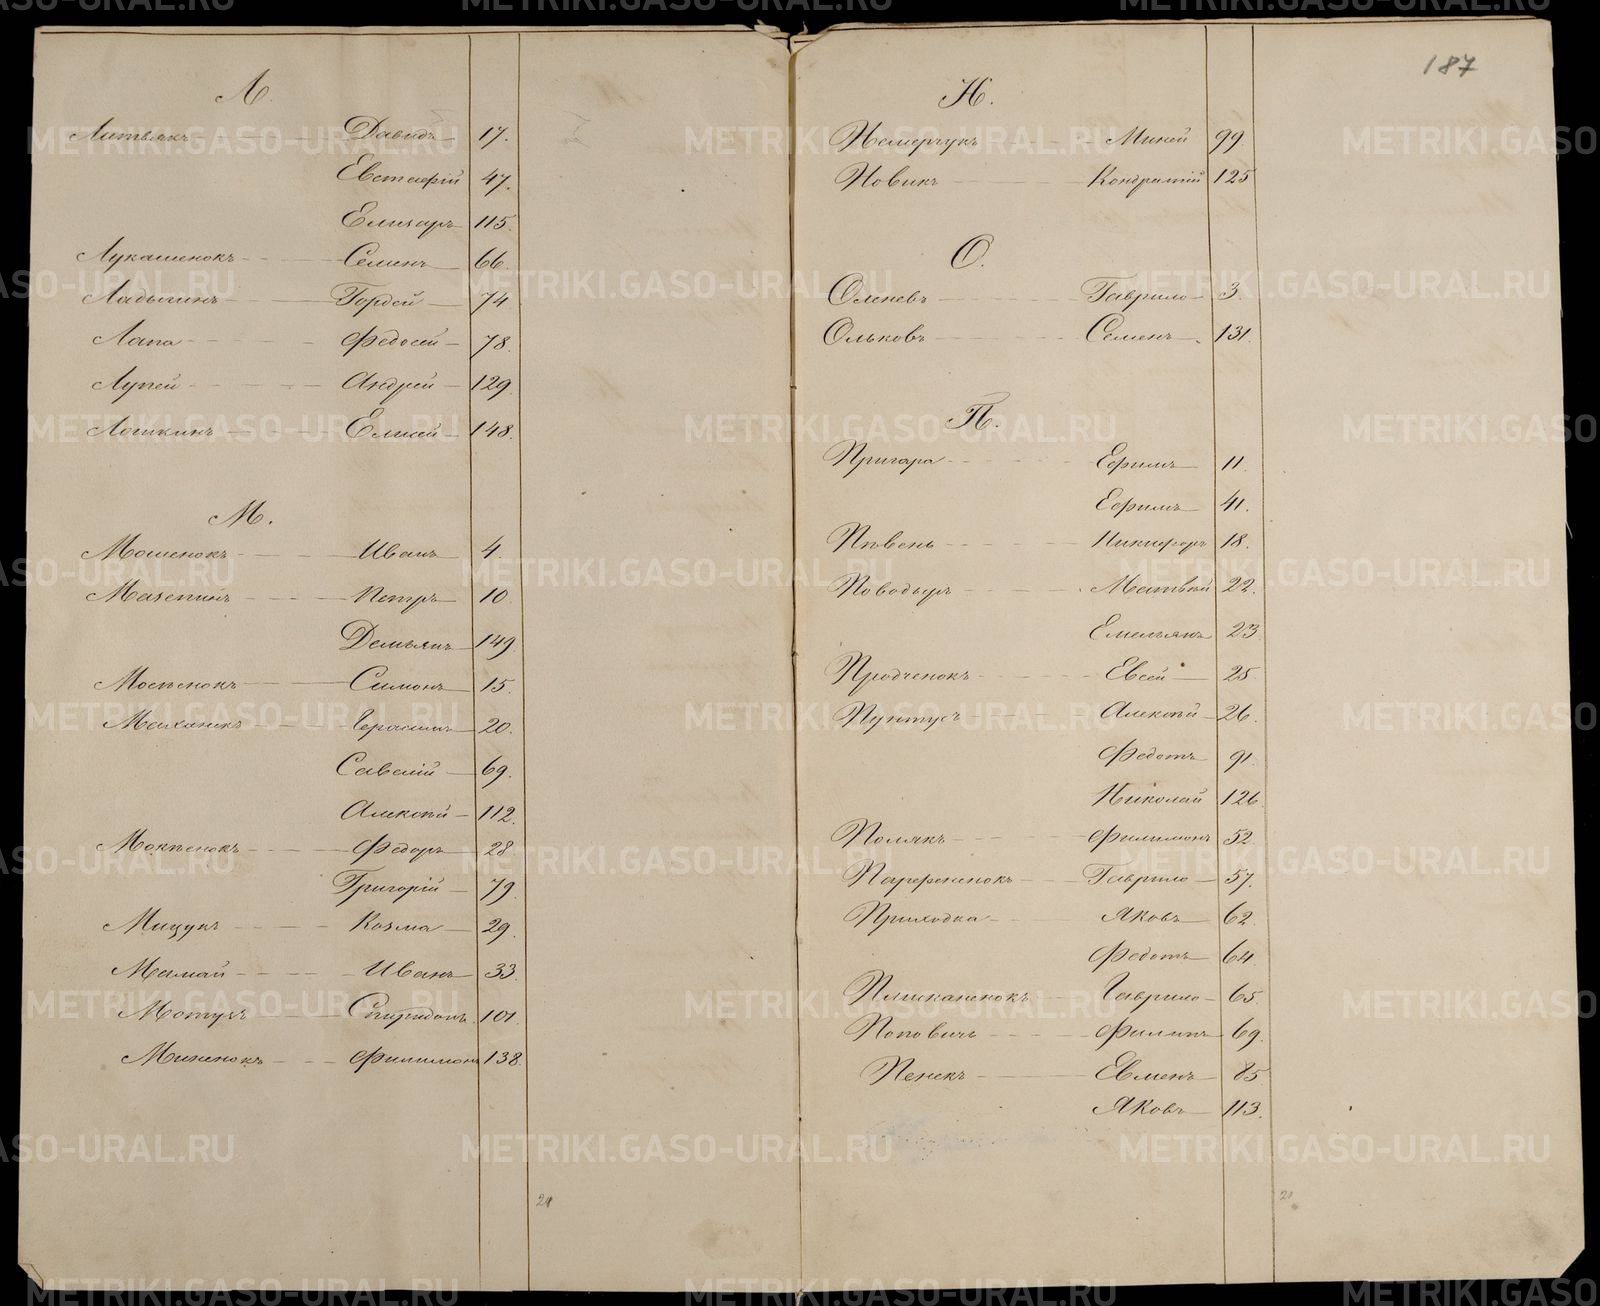 Л.
Литвякъ Давидъ 17.
Евстафій 47.
Елизаръ 115.
Лукашенокъ Семенъ 66.
Ладыгинъ Гордей 74.
Лапа Федосей 78.
Лупей Андрей 129.
Лошкинъ Елисей 148.
М.
Мошенокъ Иванъ 4.
Мазепинъ Петръ 10
Демьянъ 149.
Мосѣенокъ Симонъ 15.
Механикъ Герасимъ 20.
Савелій 69.
Алексѣй 112.
Мокѣенокъ Федоръ 28
Григорій 79.
Мицукъ Козма 29.
Мамай Иванъ 33.
Мотузъ Спиридонъ 101.
Миненокъ Филимонъ 138.
187
Н.
Немерчукъ Михей 99.
Новикъ Кондратій 125
О.
Оленевъ Гаврило 3.
Ольковъ Семенъ 131.
П.
Пригара Ефимъ 11.
Ефимъ 41.
Пѣвень Никифоръ 18.
Поводыръ Матвѣй 22.
Емельянъ 23.
Продченокъ Евсей 25
Пунтусъ Алексѣй 26.
Федотъ 91.
Николай 126.
Полякъ Филимонъ 52.
Парфененокъ Гаврило 57.
Приходка Яковъ 62.
Федотъ 64.
Плисканенокъ Гаврило 65.
Поповичъ Филипъ 69.
Пенекъ Евменъ 85.
Яковъ 113.
METRIKI.GASO-URAL.RU